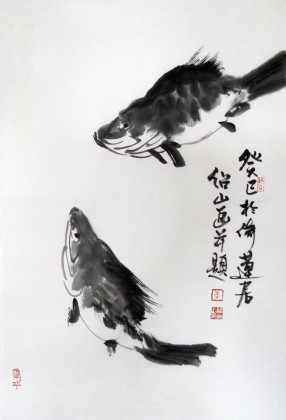 癸巳於倚蓮居
绍山画并題